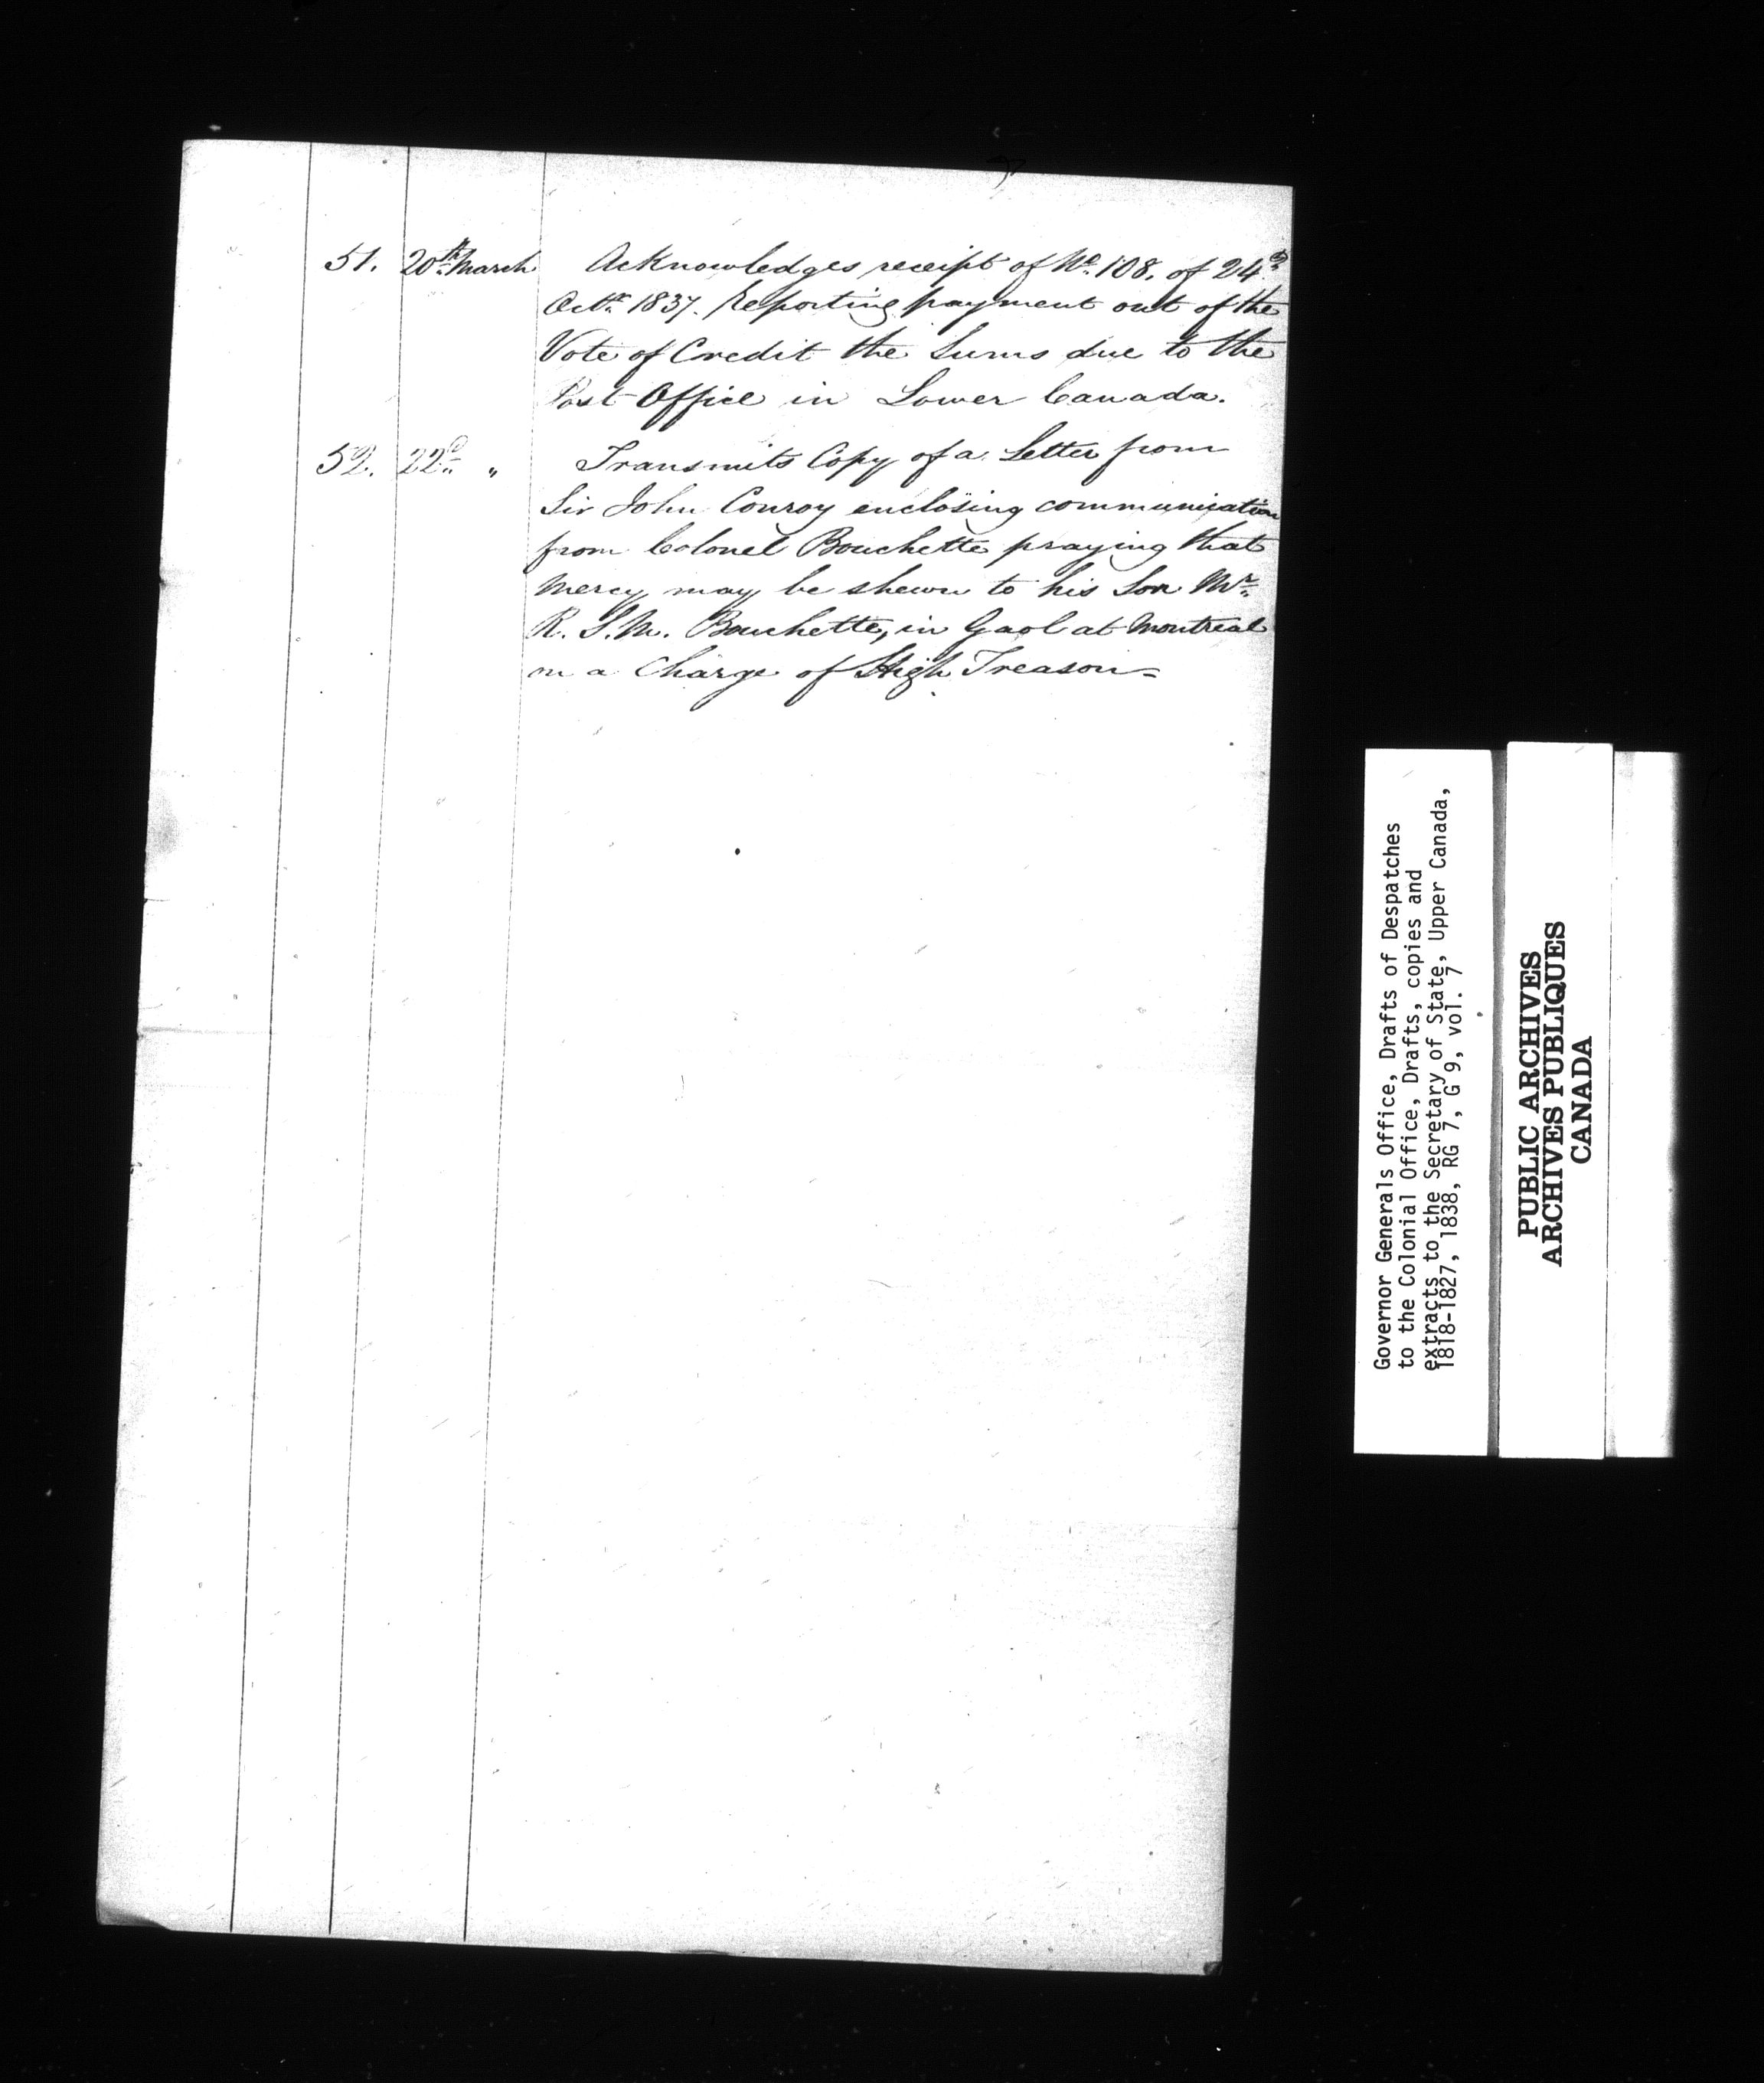 51. 20th March Acknowledges receipt of No. 108. of 24th
Octr. 1837. Reporting payment out of the
Vote of Credit the Sums due to the
Post Office in Lower Canada.
52. 22d. " Transmits Copy of a Letter from
Sir John Conroy enclosing communication
from Colonel Bouchette praying that
mercy may be shewn to his Son Mr.
R. S. M. Bouchette, in Gaol at Montreal
on a Charge of High Treason =
Governor Generals Office, Drafts of Despatches
to the Colonial Office, Drafts, copies and
extracts to the Secretary of State, Upper Canada,
1818-1827, 1838, RG 7, G 9, vol. 7
PUBLIC ARCHIVES
ARCHIVES PUBLIQUES
CANADA